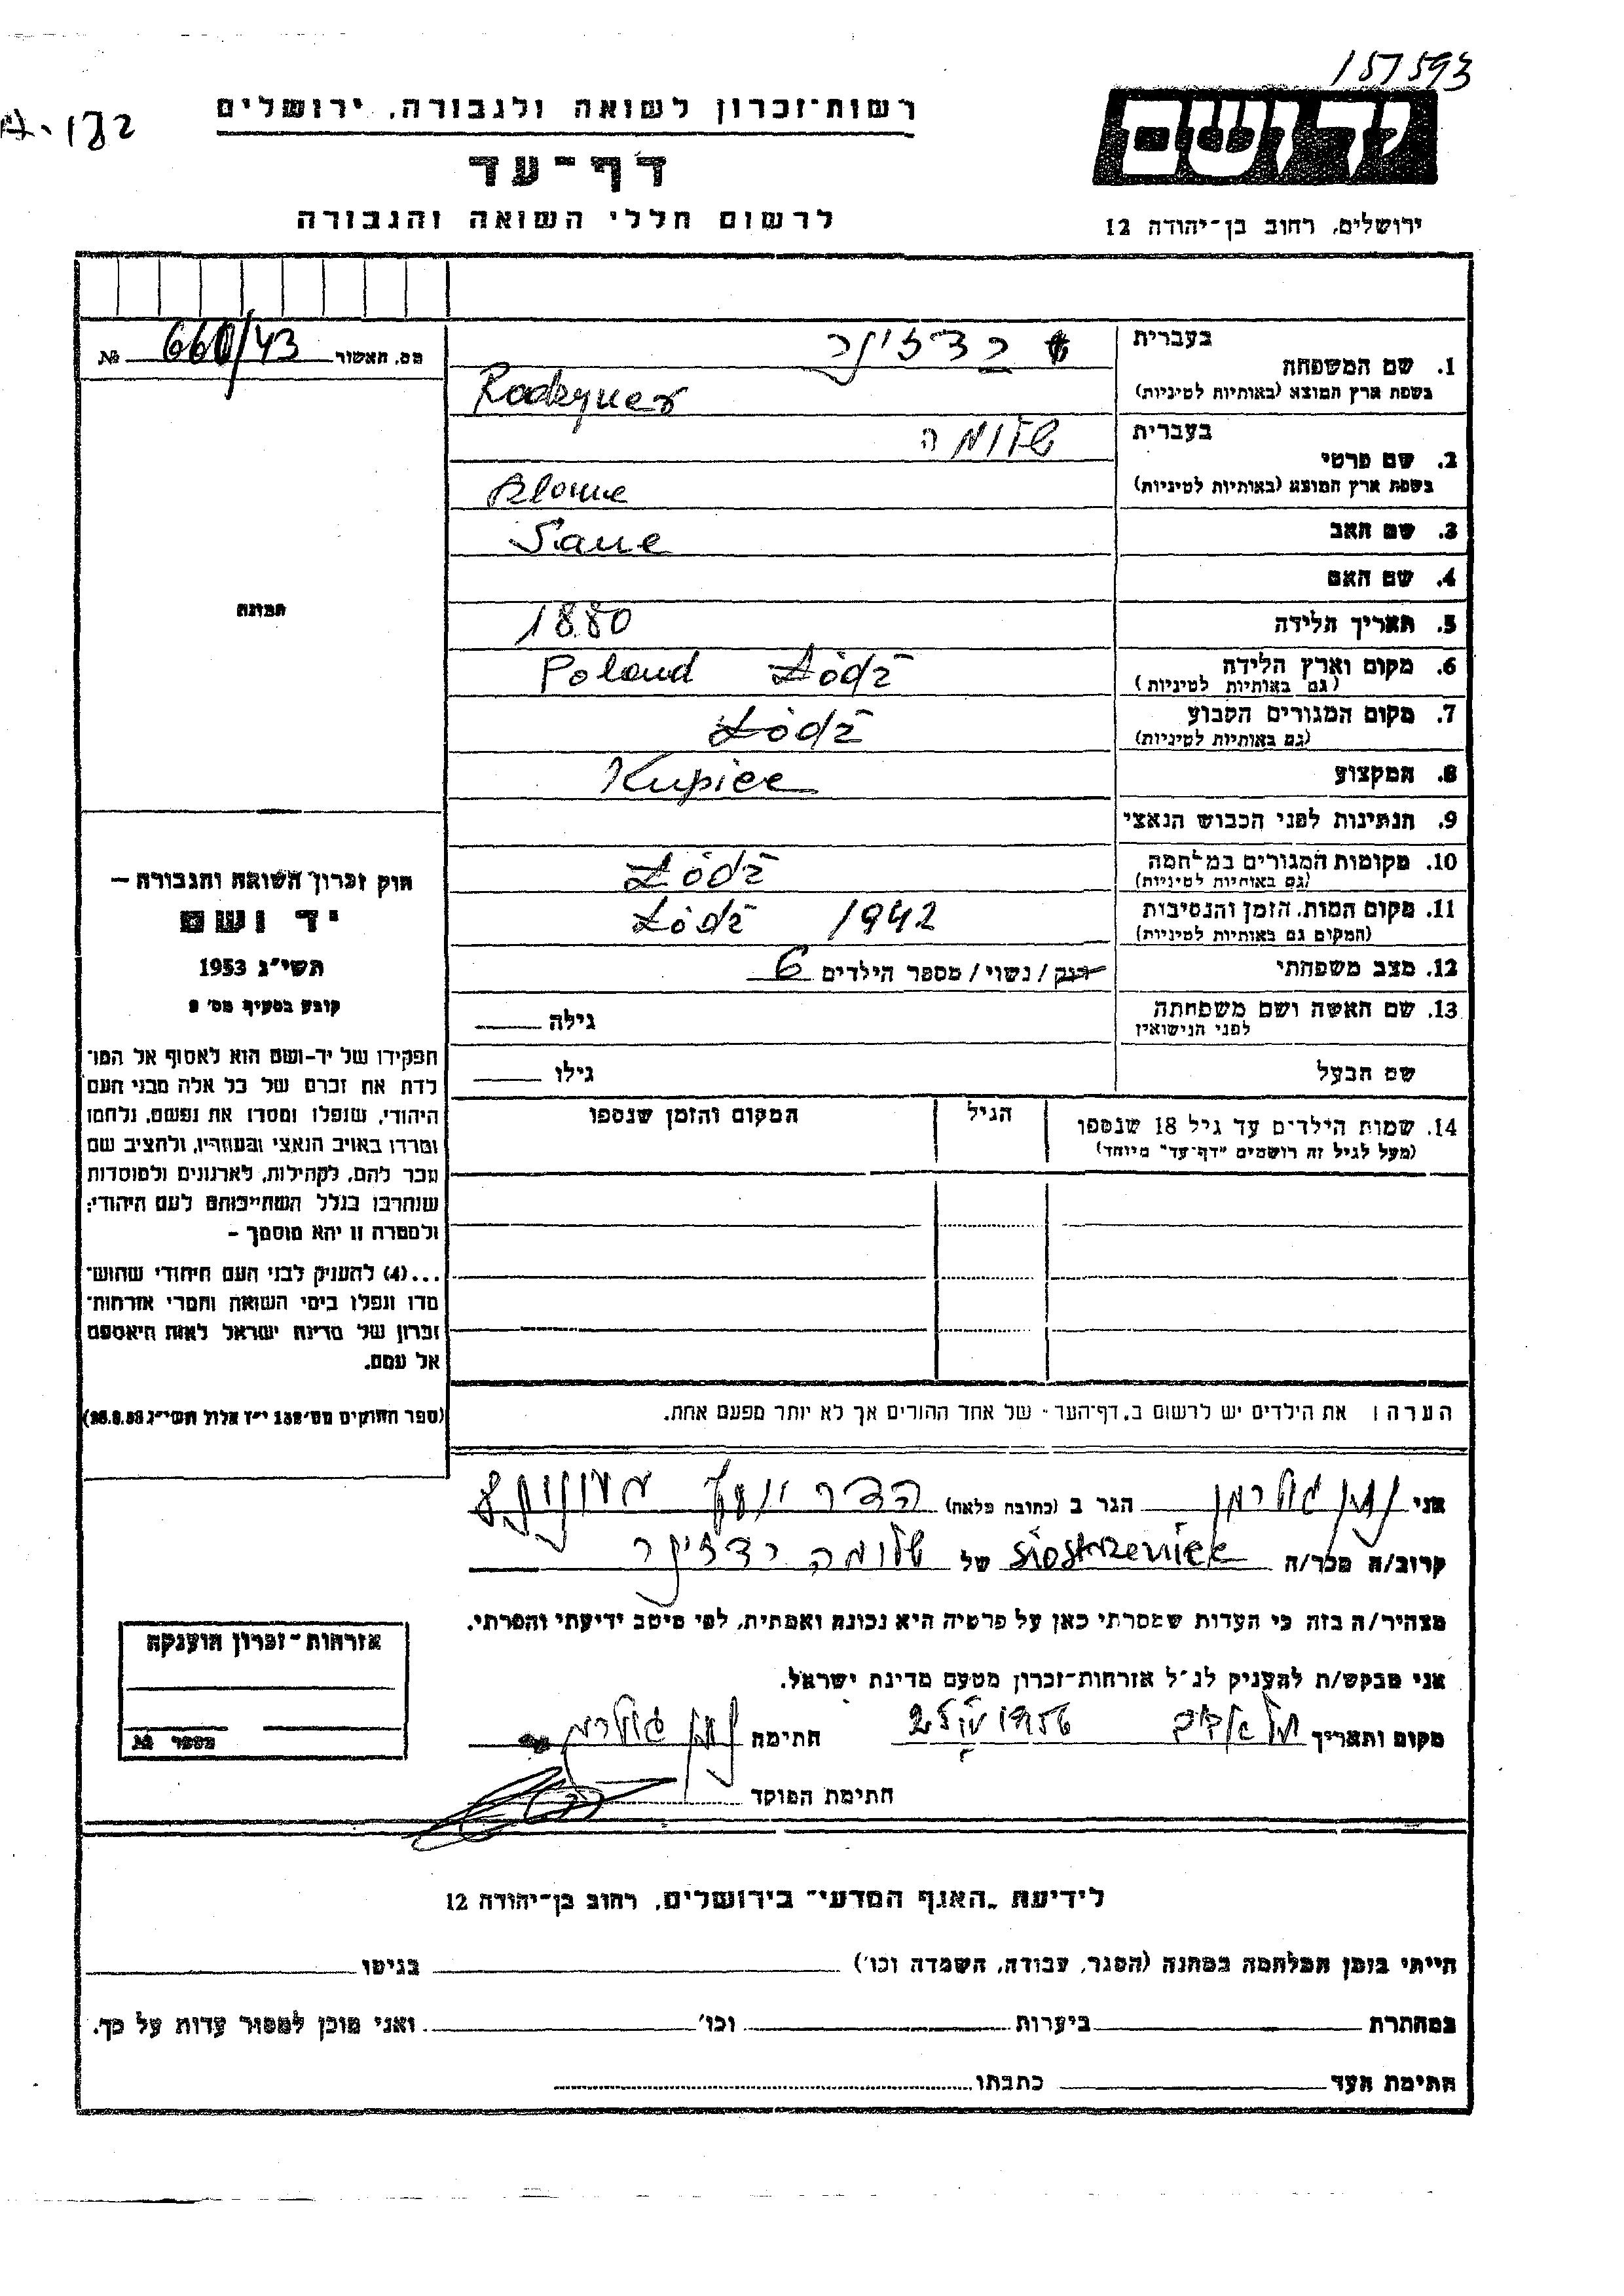 157593
רשות־זכרון לשואה ולגבורה, ירושלים
יד ושם
דף־עד
לרשום חללי השואה והגבורה
ירושלים, רחוב בן־יהודה 12
מס. תאשור 660/43 №
בעברית
1. שם המשפחה
בשפת ארץ המוצא (באותיות לטיניות)
רדזינר
Radzyner
בעברית שלומה
2. שם פרטי
בשפת ארץ המוצא (באותיות לטיניות)
3. שם האב
4. שם האם
5. תאריך הלידה 1880
6. מקום וארץ הלידה Poland Łódź
(גם באותיות לטיניות)
7. מקום המגורים הקבוע Łódź
(גם באותיות לטיניות)
8. המקצוע Kupiec
9. הנתינות לפני הכבוש הנאצי
10. מקומות המגורים במלחמה Łódź
(גם באותיות לטיניות)
11. מקום המות, הזמן והנסיבות Łódź 1942
(המקום גם באותיות לטיניות)
12. מצב משפחתי רוק / נשוי / מספר הילדים 6
13. שם האשה ושם משפחתה גילה
לפני הנישואין
שם הבעל גילו
14. שמות הילדים עד גיל 18 שנספו הגיל המקום והזמן שנספו
(מעל לגיל זה רושמים "דף־עד" מיוחד)
תמונה
חוק זכרון השואה והגבורה —
יד ושם
תשי"ג 1953
קובע בסעיף מס' 2
תפקידו של יד-ושם הוא לאסוף אל המו־
לדת את זכרם של כל אלה מבני העם
היהודי, שנפלו ומסרו את נפשם, נלחמו
ומרדו באויב הנאצי ובעוזריו, ולהציב שם
וזכר להם, לקהילות, לארגונים ולמוסדות
שנחרבו בגלל השתייכותם לעם היהודי;
ולמטרה זו יהא מוסמך —
...(4) להעניק לבני העם היהודי שהוש־
מדו ונפלו בימי השואה והמרי אזרחות־
זכרון של מדינת ישראל לאות היאספם
אל עמם.
(ספר החוקים מס' 132 י"ז אלול תשי"ג 28.8.53)
הערה: את הילדים יש לרשום ב"דף־העד" של אחד ההורים אך לא יותר מפעם אחת.
אני הגר ב (כתובת מלאה)
קרוב/ה מכר/ה siostrzeniec של שלומה רדזינר
מצהיר/ה בזה כי העדות שמסרתי כאן על פרטיה היא נכונה ואמתית, לפי מיטב ידיעתי והכרתי.
אני מבקש/ת להעניק לנ"ל אזרחות־זכרון מטעם מדינת ישראל.
מקום ותאריך 1956 חתימה
חתימת הפוקד
אזרחות־זכרון הוענקה
מספר №
לידיעת "האגף המדעי" בירושלים, רחוב בן־יהודה 12
הייתי בזמן המלחמה במחנה (הסגר, עבודה, השמדה וכו') בגיטו
במחתרת ביערות וכו' ואני מוכן למסור עדות על כך.
חתימת העד כתבתו